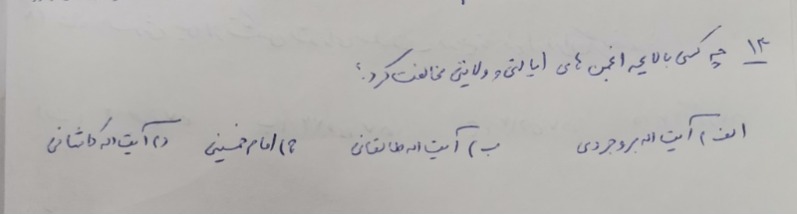 ۱۳ چه کسی با لایحه انجمن های ایالتی و ولایتی مخالفت کرد؟
الف) آیت اله بروجردی ب) آیت اله طالقانی ج) امام خمینی د) آیت اله کاشانی